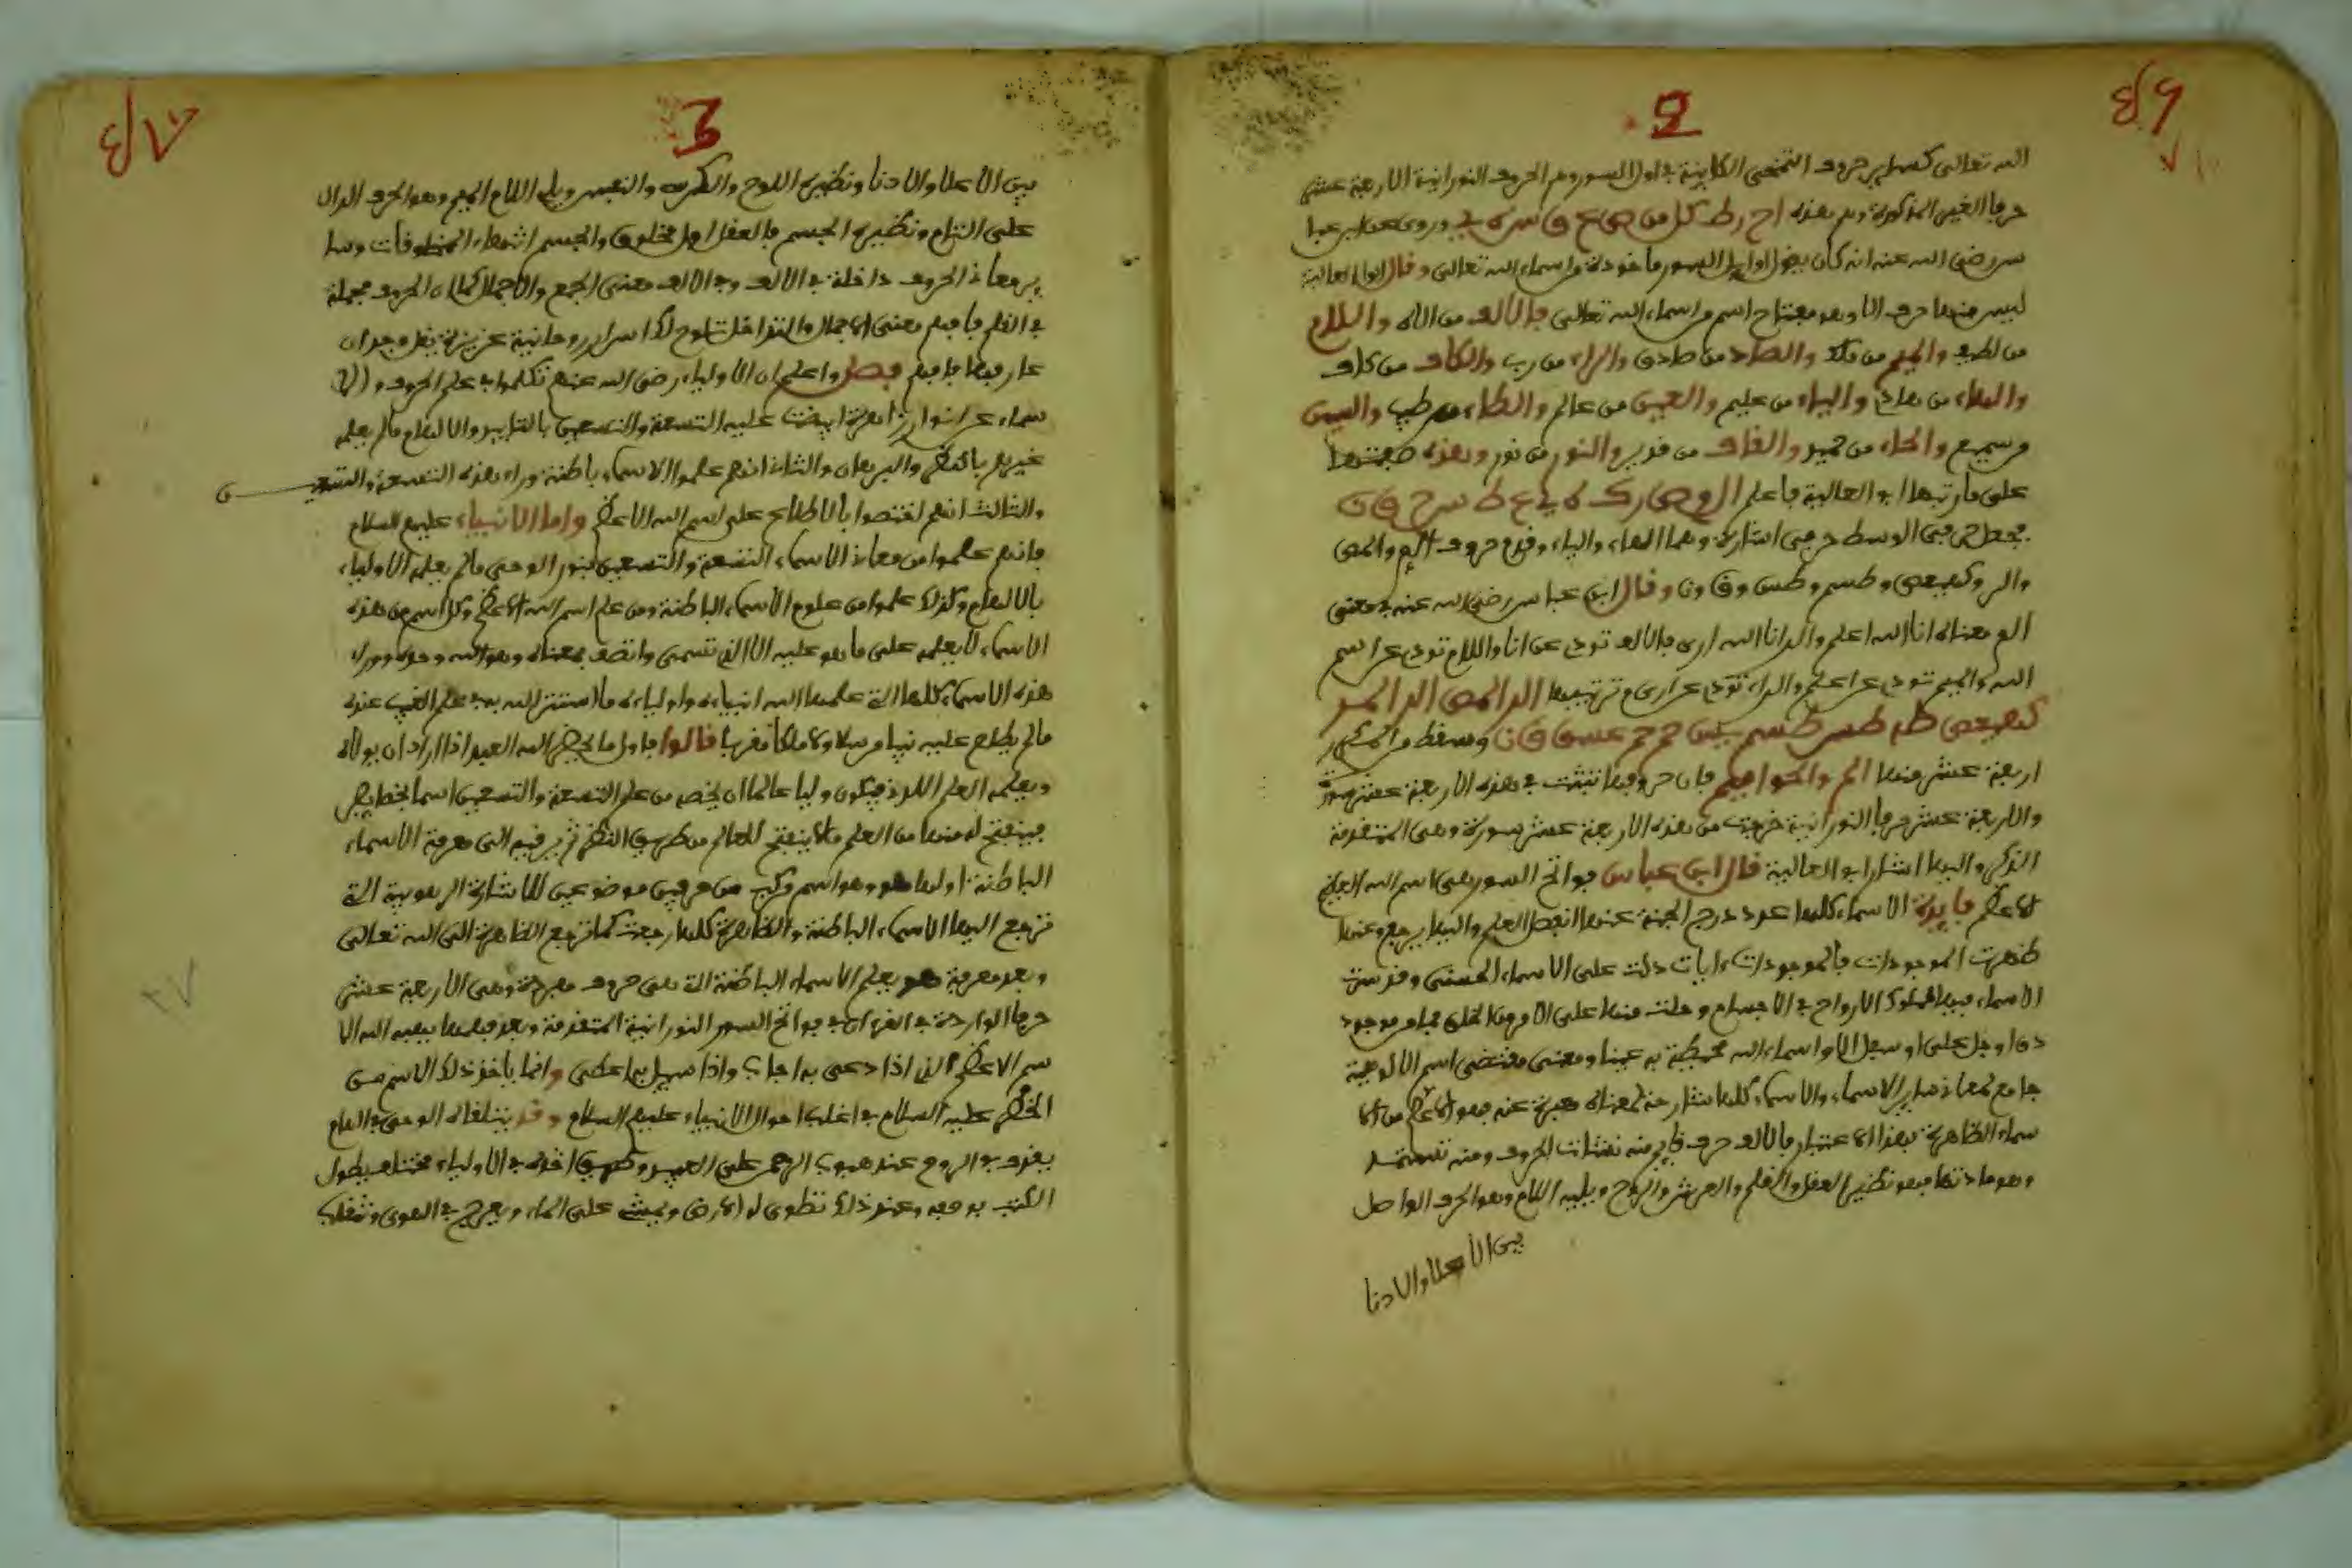 2
الله تعالى كسائر حروف التهجى الكاينة في اول السور وهم الحروف النورانية الاربعة عشر
حرفا الغير المذكورة وهم هذه ا ح ر ط ك ل م ن ص ع ق س ه ي وروي عن ابن عبا
س رضي الله عنه انه كان يقول اوايل السور ماخوذة من اسماء الله تعالى وقال ابوا العالية
ليس منها حرف الا وهو مفتاح اسم من اسماء الله تعالى فالالف من الاه واللام
من لطيف والميم من ملك والصاد من صادق والراء من رب والكاف من كاف
والهاء من هادي والياء من عليم والعين من عالم والطاء من طيب والسين
من سميع والحاء من حميد والقاف من قدير والنون من نور وهذه صفتها
على ما رتبها ابو العالية فاعلم ا ل م ص ر ك ه ي ع ط س ح ق ن
في الوسط حرفين اشارة وهما الهاء والياء وقدم حروف الم والمص
والر وكهيعص وطسم وطس وق ون وقال ابن عباس رضي الله عنه في معنى
الم معناه انا الله اعلم والر انا الله ارى فالالف تودي عن انا واللام تودي عن اسم
الله والميم تودي عن اعلم والراء تودي عن ارى وترتيبها الم المص الر المر
كهيعص طه طس طسم يس ص حم حم عسق ق ن وسقط من المكرر
اربعة عشر منها الم والحواميم فان حروفها تثبت في هذه الاربعة عشر سورة
والاربعة عشر حرفا النورانية خرجت من هذه الاربعة عشر سورة وهى المتقدمة
الذكر واليها اشار ابو العالية قال ابن عباس فواتح السور هى اسم الله العظيم
الاعظم فايدة الاسماء كلها عدد درج الجنة عنها انفصل العلم واليها يرجع وعنها
ظهرت الموجودات فالموجودات ءايات دلت على الاسماء الحسنى وقد سرت
الاسماء فيها سلوك الارواح في الاجسام وحلت منها على الامر من الخلق فما من موجود
دق او جل علا او سفل الا واسماء الله محيطة به عينا ومعنى مقتضى اسم الالوهية
جامع لمعاني ساير الاسماء والاسماء كلها شارحة لمعناه معبرة عنه فهو الاعظم من الا
سماء الظاهرة فبهذا الاعتبار فالالف حرف قايم منه نشات الحروف ومنه تستمد
وهو مادتها فهو نظير العقل والقلم والعرش والروح ويليه اللام وهو الحرف الواصل
بين الاعلا والادنا
3
بين الاعلا والادنا ونظيره اللوح والكرسي والنفس ويلي اللام الميم وهو الحرف الدال
على التمام ونظيره الجسم فالعقل اول مخلوق والجسم انتهاء المخلوقات وسا
ير معاني الحروف داخلة في الالف وفي الالف معنى الجمع والاجمال كما ان الحروف مجملة
في القلم فافهم معنى الاجمال والتداخل تلوح لك اسرار روحانية عزيزة يقل وجدان
عارفيها فافهم فصل واعلم ان الاولياء رضي الله عنهم تكلموا في علم الحروف والا
سماء عن انوار زاهرة افيضت عليه التسعة والتسعين بالتاييد والالهام ما لم يعلم
غيرهم بالنظر والبرهان والثاني انهم علموا الاسماء باطنة وراء هذه التسعة والتسعين
والثالث انهم اختصوا بالاطلاع على اسم الله الاعظم واما الانبياء عليهم السلام
فانهم علموا من معاني الاسماء التسعة والتسعين بنور الوحى ما لم يعلم الاولياء
بالالهام وكذلك علموا من علوم الاسماء الباطنة ومن علم اسم الله الاعظم وكل اسم من هذه
الاسماء لا يعلمه على ما هو عليه الا الذي تسمى واتصف بمعناه وهو الله وحده ووراء
هذه الاسماء كلها التي علمها الله انبياءه واولياءه ما استاثر الله به في علم الغيب عنده
ما لم يطلع عليه نبيا مرسلا ولا ملكا مقربا قالوا فاول ما يخص الله العبد اذا اراد ان يولاه
ويعلمه العلم اللدني فيكون وليا عالما ان يخصه من علم التسعة والتسعين اسما بخصايص
فينفتح له منها من العلم ما لا ينفتح للعالم من طريق النظر ثم يرقيه الى معرفة الاسماء
الباطنة اولها هو وهو اسم مركب من حرفين موضوعين للاشارة الربوبية التي
ترجع اليها الاسماء الباطنة والظاهرة كلها رجعت كما ترجع الظاهرة الى الله تعالى
وبعد معرفة هو يعلم الاسماء الباطنة التي هى حروف مفردة وهى الاربعة عشر
حرفا الواردة في القرءان في فواتح السور النورانية المتقدمة وبعد فهمها يهبه الله الا
سم الاعظم الذي اذا دعى به اجاب واذا سيل به اعطى وانما ياخذ ذلك الاسم من
الخضر عليه السلام في اغلب احوال الانبياء عليهم السلام وقد يتلقاه الوحى في الهام
يقذف في الروع عند هبوب الرحمة على العبد وطريق اخذه في الاولياء مختلف يطول
الكتب بوصفه وعند ذلك تطوى له الارض ويمشي على الماء ويعرج في الهوى وتنقلب